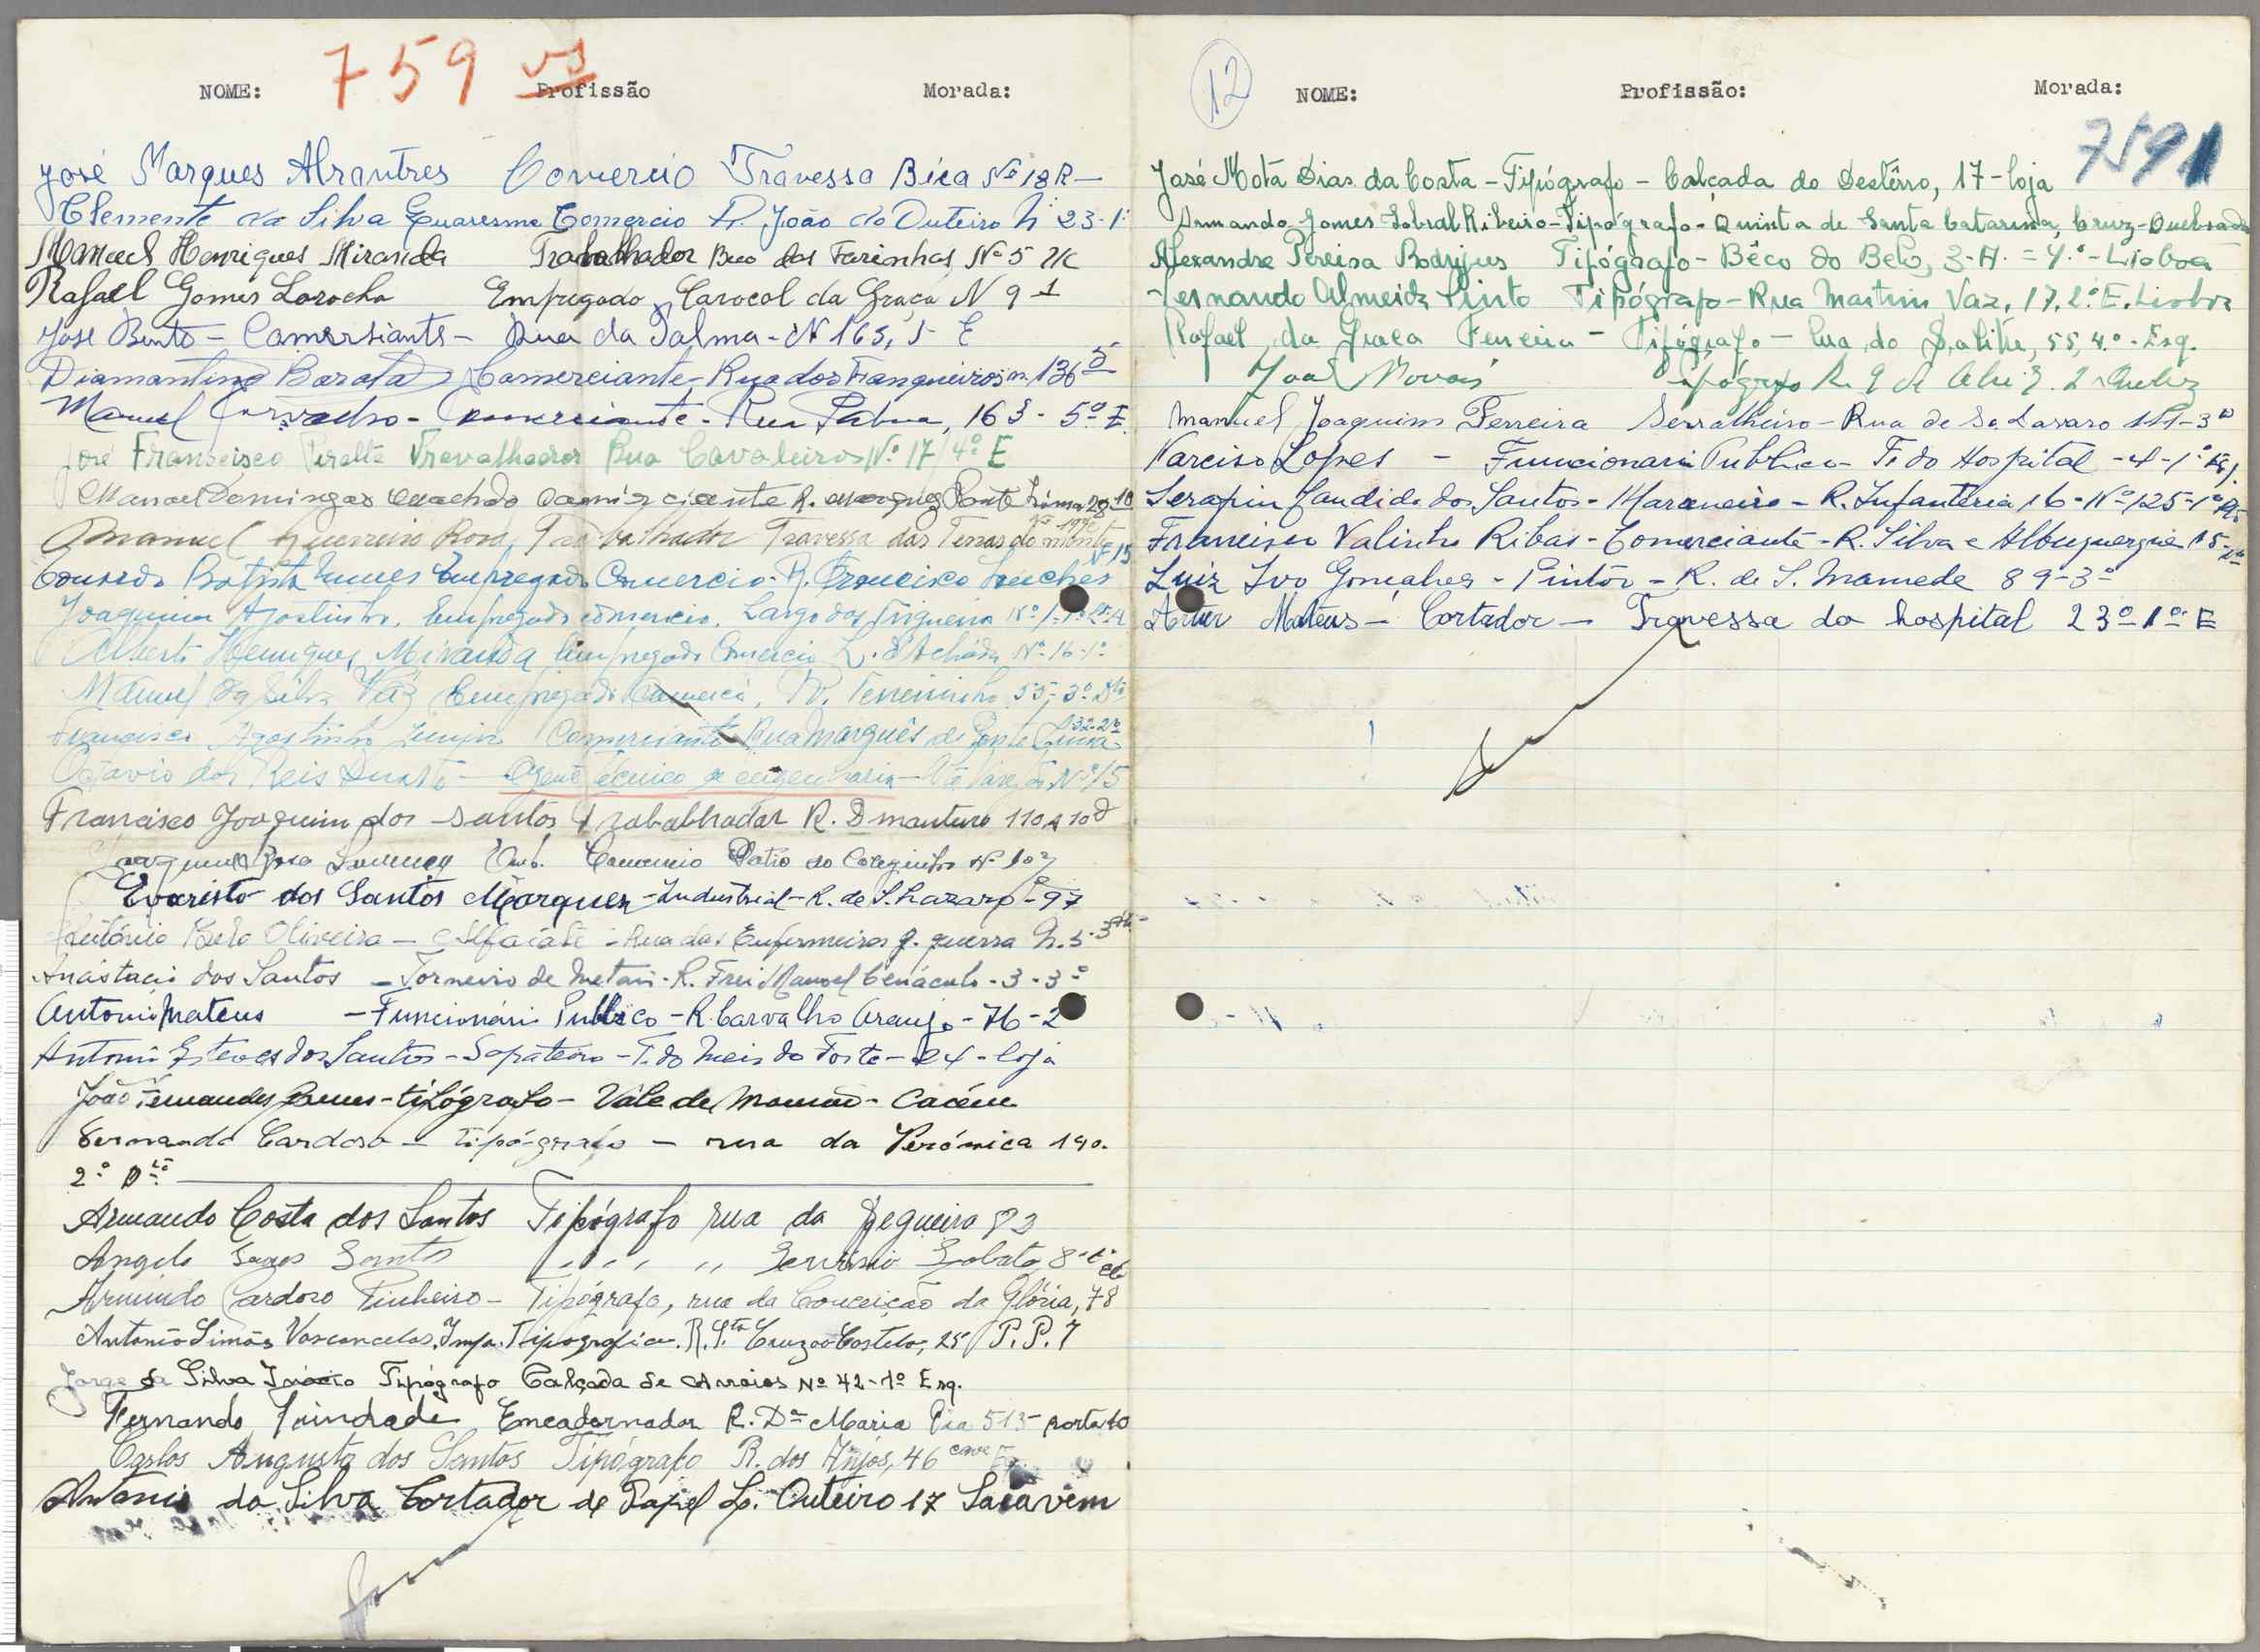 759 vs
NOME: Profissão Morada:
José Marques Abrantres Comercio Travessa Bica Nº 18 R-
Clemente da Silva Quaresma Comercio R. João do Outeiro Nº 23-1º
Manuel Henriques Miranda Trabalhador Beco das Farinhas Nº 5
Rafael Gomes Larocha Empregado Caracol da Graça N 9 1
José Bento - Comersiante - Rua da Palma - Nº 165, 5 E
Diamantino Barata Comerciante - Rua dos Franqueiros nº 136 5
Manuel Carvalho - Comerciante - Rua Palma, 163 - 5º E.
José Fransisco Peralta Travalhador Rua Cavaleiros Nº 17 4º E
Manoel Domingos Machado R. Marquez Ponte Lima 28 10
Manuel Guerreiro Rosa, Trabalhador Travessa das Terras do Monte
Nº 15
Batista Nunes Empregado Comercio - R. Francisco Sanches
Joaquim Agostinho, Empregado comercio, Largo dos Trigueiros Nº 1-1º
Alberto Henriques Miranda Empregado Comercio L. d'Achada Nº 16-1º
Manuel da Silva Vaz Empregado Comercio, R. Terreirinho 55-3º Dtº
Francisco Agostinho Junior Comerciante Rua Marquês de Ponte Lima
Octavio dos Reis Duarte - Agente técnico de engenharia - Nº 15
Francisco Joaquim dos Santos Trabalhador R.
Rosa Emb. Comercio Patio do Coleginho Nº 10
Evaristo dos Santos Marques - Industrial - R. de S. Lazaro - 97
António Oliveira - Alfaiate - Rua das Enfermeiras g. guerra
Anástacio dos Santos - Torneiro de Metais - R. Frei Manoel Cenáculo - 3 - 3º
Antonio Mateus - Funcionário Publico - R. Carvalho Araujo - 76 - 2
Antonio Esteves dos Santos - Sapateiro - T. do Meio do Forte - 24 - loja
João Fernandes - tipógrafo - Vale de Mourão - Cacém
Fernando Cardoso - tipógrafo - rua da Verónica 190.
2º Dtº
Armando Costa dos Santos Tipógrafo rua da Regueira 83
Angelo Santos " " " Gervásio Lobato, 8
Armindo Cardoso Pinheiro - Tipógrafo, rua da Conceição da Glória, 78
António Simões Vasconcelos. Imp. Tipografico. R. Stª Cruz ao Castelo, 25 P. P. 7
Jorge da Silva Inácio Tipógrafo Calçada de Arroios Nº 42-1º Esq.
Fernando Trindade Encadernador R. Dª Maria Pia 513 porta 10
Carlos Augusto dos Santos Tipógrafo R. dos Anjos, 46 cave
Antonio da Silva Cortador de Papel Lg. Outeiro 17 Sacavem
12
NOME: Profissão: Morada:
759
José Mota Dias da Costa - Tipógrafo - Calçada do Destêrro, 17-loja
Armando Gomes Sobral Ribeiro - Tipógrafo - Quinta de Santa Catarina, Cruz-Quebrada
Alexandre Pereira Rodrigues Tipógrafo - Bêco do Belo, 3-A. = 4.º - Lisboa
Fernando Almeida Pinto Tipógrafo - Rua Martim Vaz, 17, 2º E. Lisboa
Rafael da Graça Ferreira - Tipógrafo - Rua do Salitre, 55, 4.º - Esq.
Novais Tipógrafo R. 9 de Abril
Manuel Joaquim Ferreira Serralheiro - Rua de S. Lazaro 111-3º
Narciso Lopes - Funcionario Publico - T. do Hospital - 4 - 1º Esq.
Serafim Candido dos Santos - Marceneiro - R. Infantéria 16 - Nº 125-1º
Francisco Valinho Ribas - Comerciante - R. Silva e Albuquerque 15
Luiz Ivo Gonçalves - Pintor - R. de S. Mamede 89-3º
Artur Mateus - Cortador - Travessa do hospital 23º 1º E